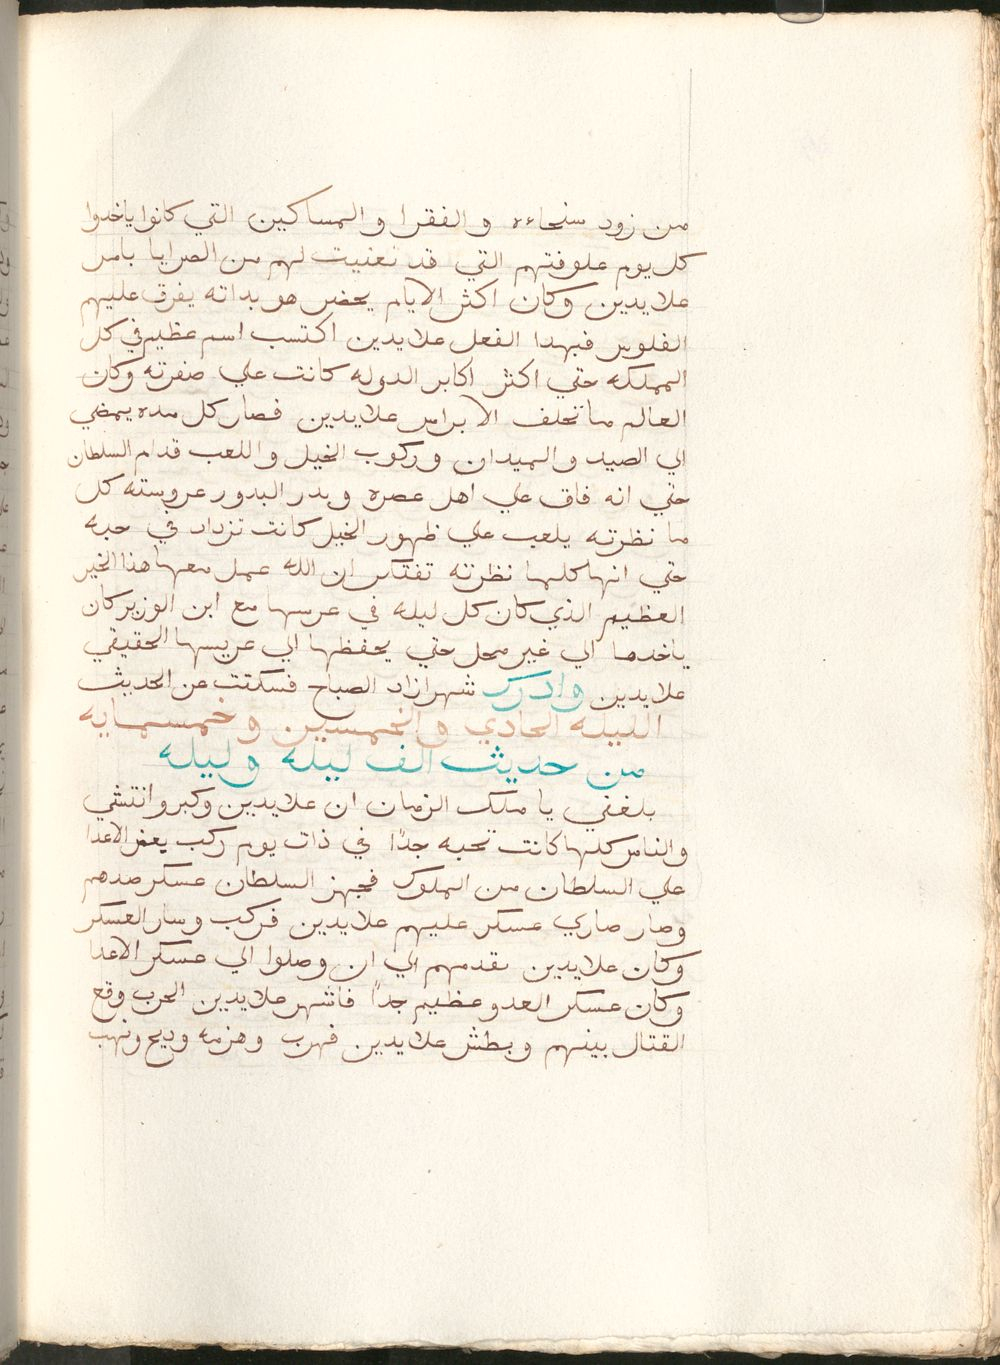 من زود سخاءه والفقرا والمساكين التي كانوا ياخدوا
كل يوم علوفتهم التي قد تعنيت لهم من الصرايا بامر
علايدين وكان اكثر الايام يحضر هو بداته يفرق عليهم
الفلوس فبهدا الفعل علايدين اكتسب اسم عظيم في كل
المملكه حتي اكثر اكابر الدوله كانت علي صفرته وكان
العالم ما تحلف الا براس علايدين فصار كل مده يمضي
الي الصيد والميدان وركوب الخيل واللعب قدام السلطان
حتي انه فاق علي اهل عصره وبدر البدور عروسته كل
ما نظرته يلعب علي ظهور الخيل كانت تزداد في حبه
حتي انها كلما نظرته تفتكر ان الله عمل معها هذا الخير
العظيم الذي كان كل ليله في عرسها مع ابن الوزير كان
ياخدها الي غير محل حتي يحفظها الي عريسها الحقيقي
علايدين وادرك شهرازاد الصباح فسكتت عن الحديث
الليله الحادي والخمسين وخمسمايه
من حديث الف ليله وليله
بلغني يا ملك الزمان ان علايدين وكبر وانتشي
والناس كلها كانت تحبه جدًا في ذات يوم ركب بعض الاعدا
علي السلطان من الملوك فجهز السلطان عسكر ضدهم
وصار صاري عسكر عليهم علايدين فركب وسار العسكر
وكان علايدين يقدمهم الي ان وصلوا الي عسكر الاعدا
وكان عسكر العدو عظيم جداً فاشهر علايدين الحرب وقع
القتال بينهم وبطش علايدين فهرب وهزمه وربح ونهب